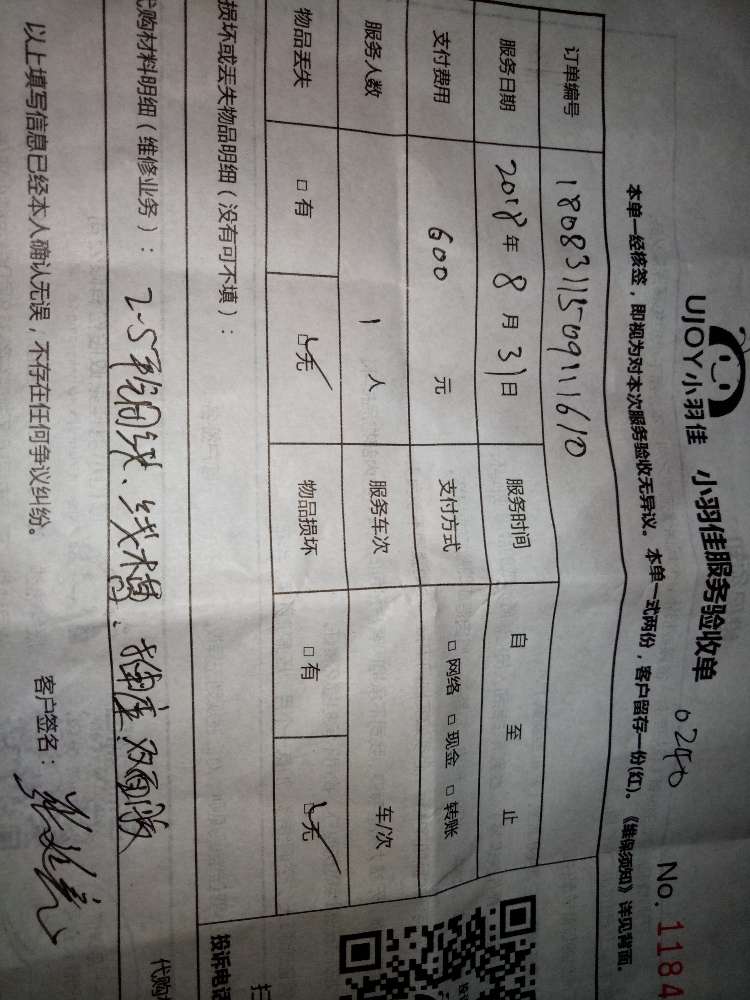 UJOY小羽佳 小羽佳服务验收单 0240 No. 1184
本单一经核签，即视为对本次服务验收无异议。本单一式两份，客户留存一份(红)。《维保须知》详见背面。
订单编号 180831150911610
服务日期 2018年8月31日 服务时间 自 至 止
支付费用 600 元 支付方式 □ 网络 □ 现金 □ 转账
服务人数 1 人 服务车次 车/次
物品丢失 □ 有 □ 无 物品损坏 □ 有 □ 无
损坏或丢失物品明细（没有可不填）：
代购材料明细（维修业务）： 2.5平铜线、线槽、插座、双面胶 代购
以上填写信息已经本人确认无误，不存在任何争议纠纷。 客户签名：
投诉电话
扫